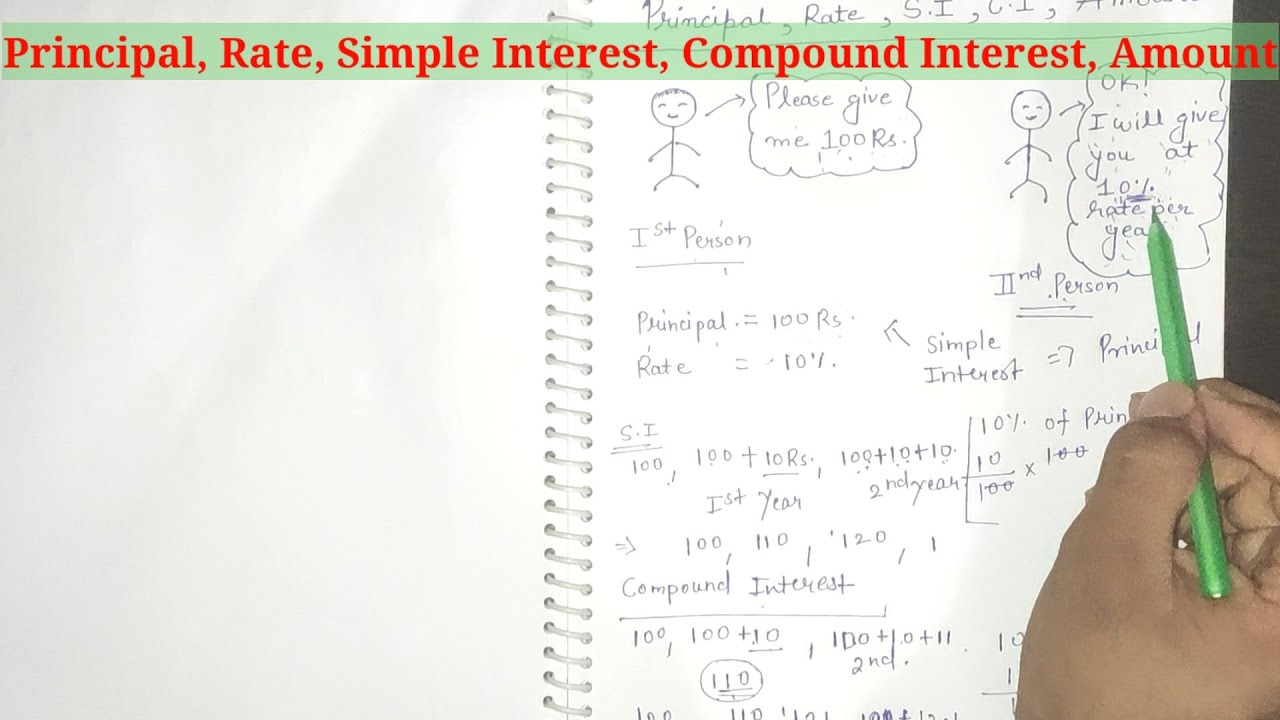 Principal, Rate, S.I, C.I,
Principal, Rate, Simple Interest, Compound Interest, Amount
Please give
me 100 Rs.
OK!
I will give
you at
10%
rate per
year
Ist Person
IInd Person
Principal = 100 Rs.
Rate = 10%.
Simple
Interest => Principal
S.I
100, 100 + 10Rs., 100+10+10.
Ist Year
2nd year
10% of Prin
10
100 × 100
=> 100, 110, 120, 1
Compound Interest
100, 100 + 10, 100+10+11.
2nd.
110